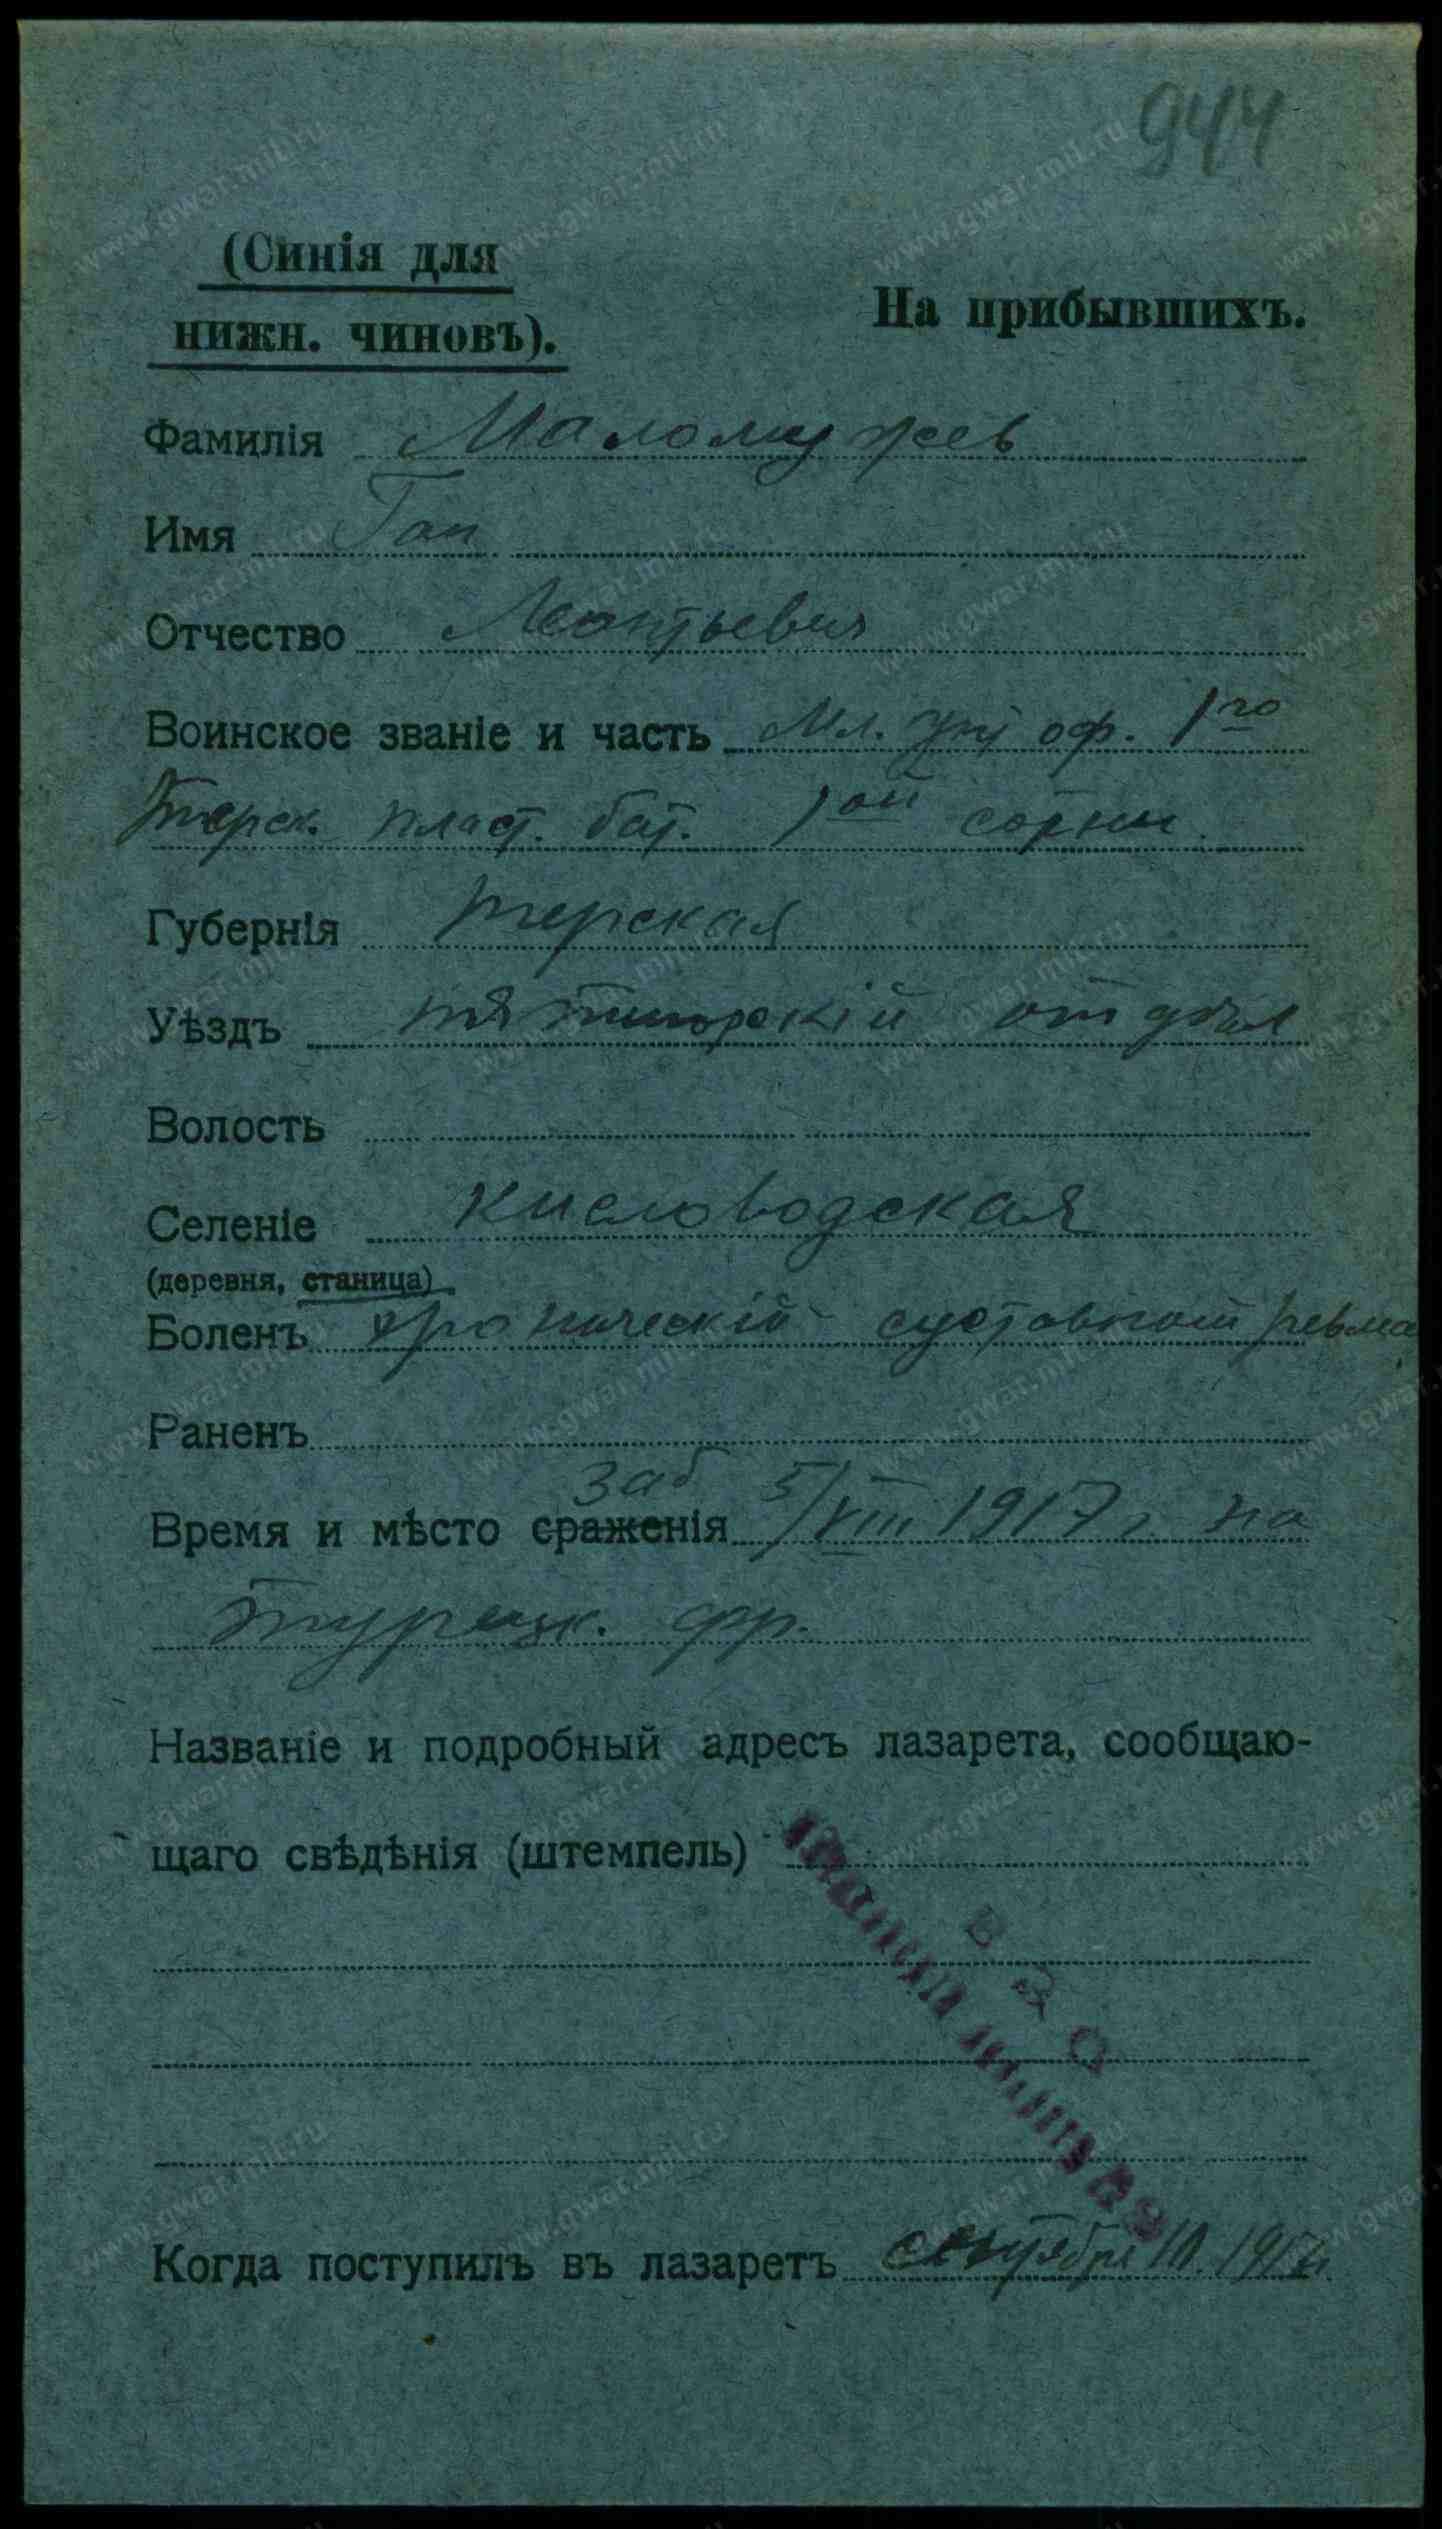 944
(Синія для
нижн. чиновъ).
На прибывшихъ.
Фамилія Маломужев
Имя Гай
Отчество Леонтьевич
Воинское званіе и часть Мл. унт оф. 1го
терск. пласт. бат. 1ой сотни
Губернія терская
Уѣздъ пятигорскій отдѣл
Волость
Селеніе кисловодская
(деревня, станица)
Боленъ хроническій суставной ревма
Раненъ
заб
Время и мѣсто сраженія 5/VIII 1917 г. на
турецк. фр.
Названіе и подробный адресъ лазарета, сообщаю-
щаго свѣдѣнія (штемпель)
В З О
Когда поступилъ въ лазаретъ сентября 10. 1917г.